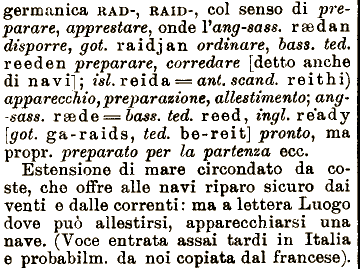 germanica RAD-, RAID-, col senso di pre-
parare, apprestare, onde l'ang-sass. rædan
disporre, got. raidjan ordinare, bass. ted.
reeden preparare, corredare [detto anche
di navi]; isl. reida = ant. scand. reithi)
apparecchio, preparazione, allestimento; ang-
-sass. ræde = bass. ted. reed, ingl. re'ady
[got. ga-raids, ted. be-reit] pronto, ma
propr. preparato per la partenza ecc.
Estensione di mare circondato da co-
ste, che offre alle navi riparo sicuro dai
venti e dalle correnti: ma a lettera Luogo
dove può allestirsi, apparecchiarsi una
nave. (Voce entrata assai tardi in Italia
e probabilm. da noi copiata dal francese).